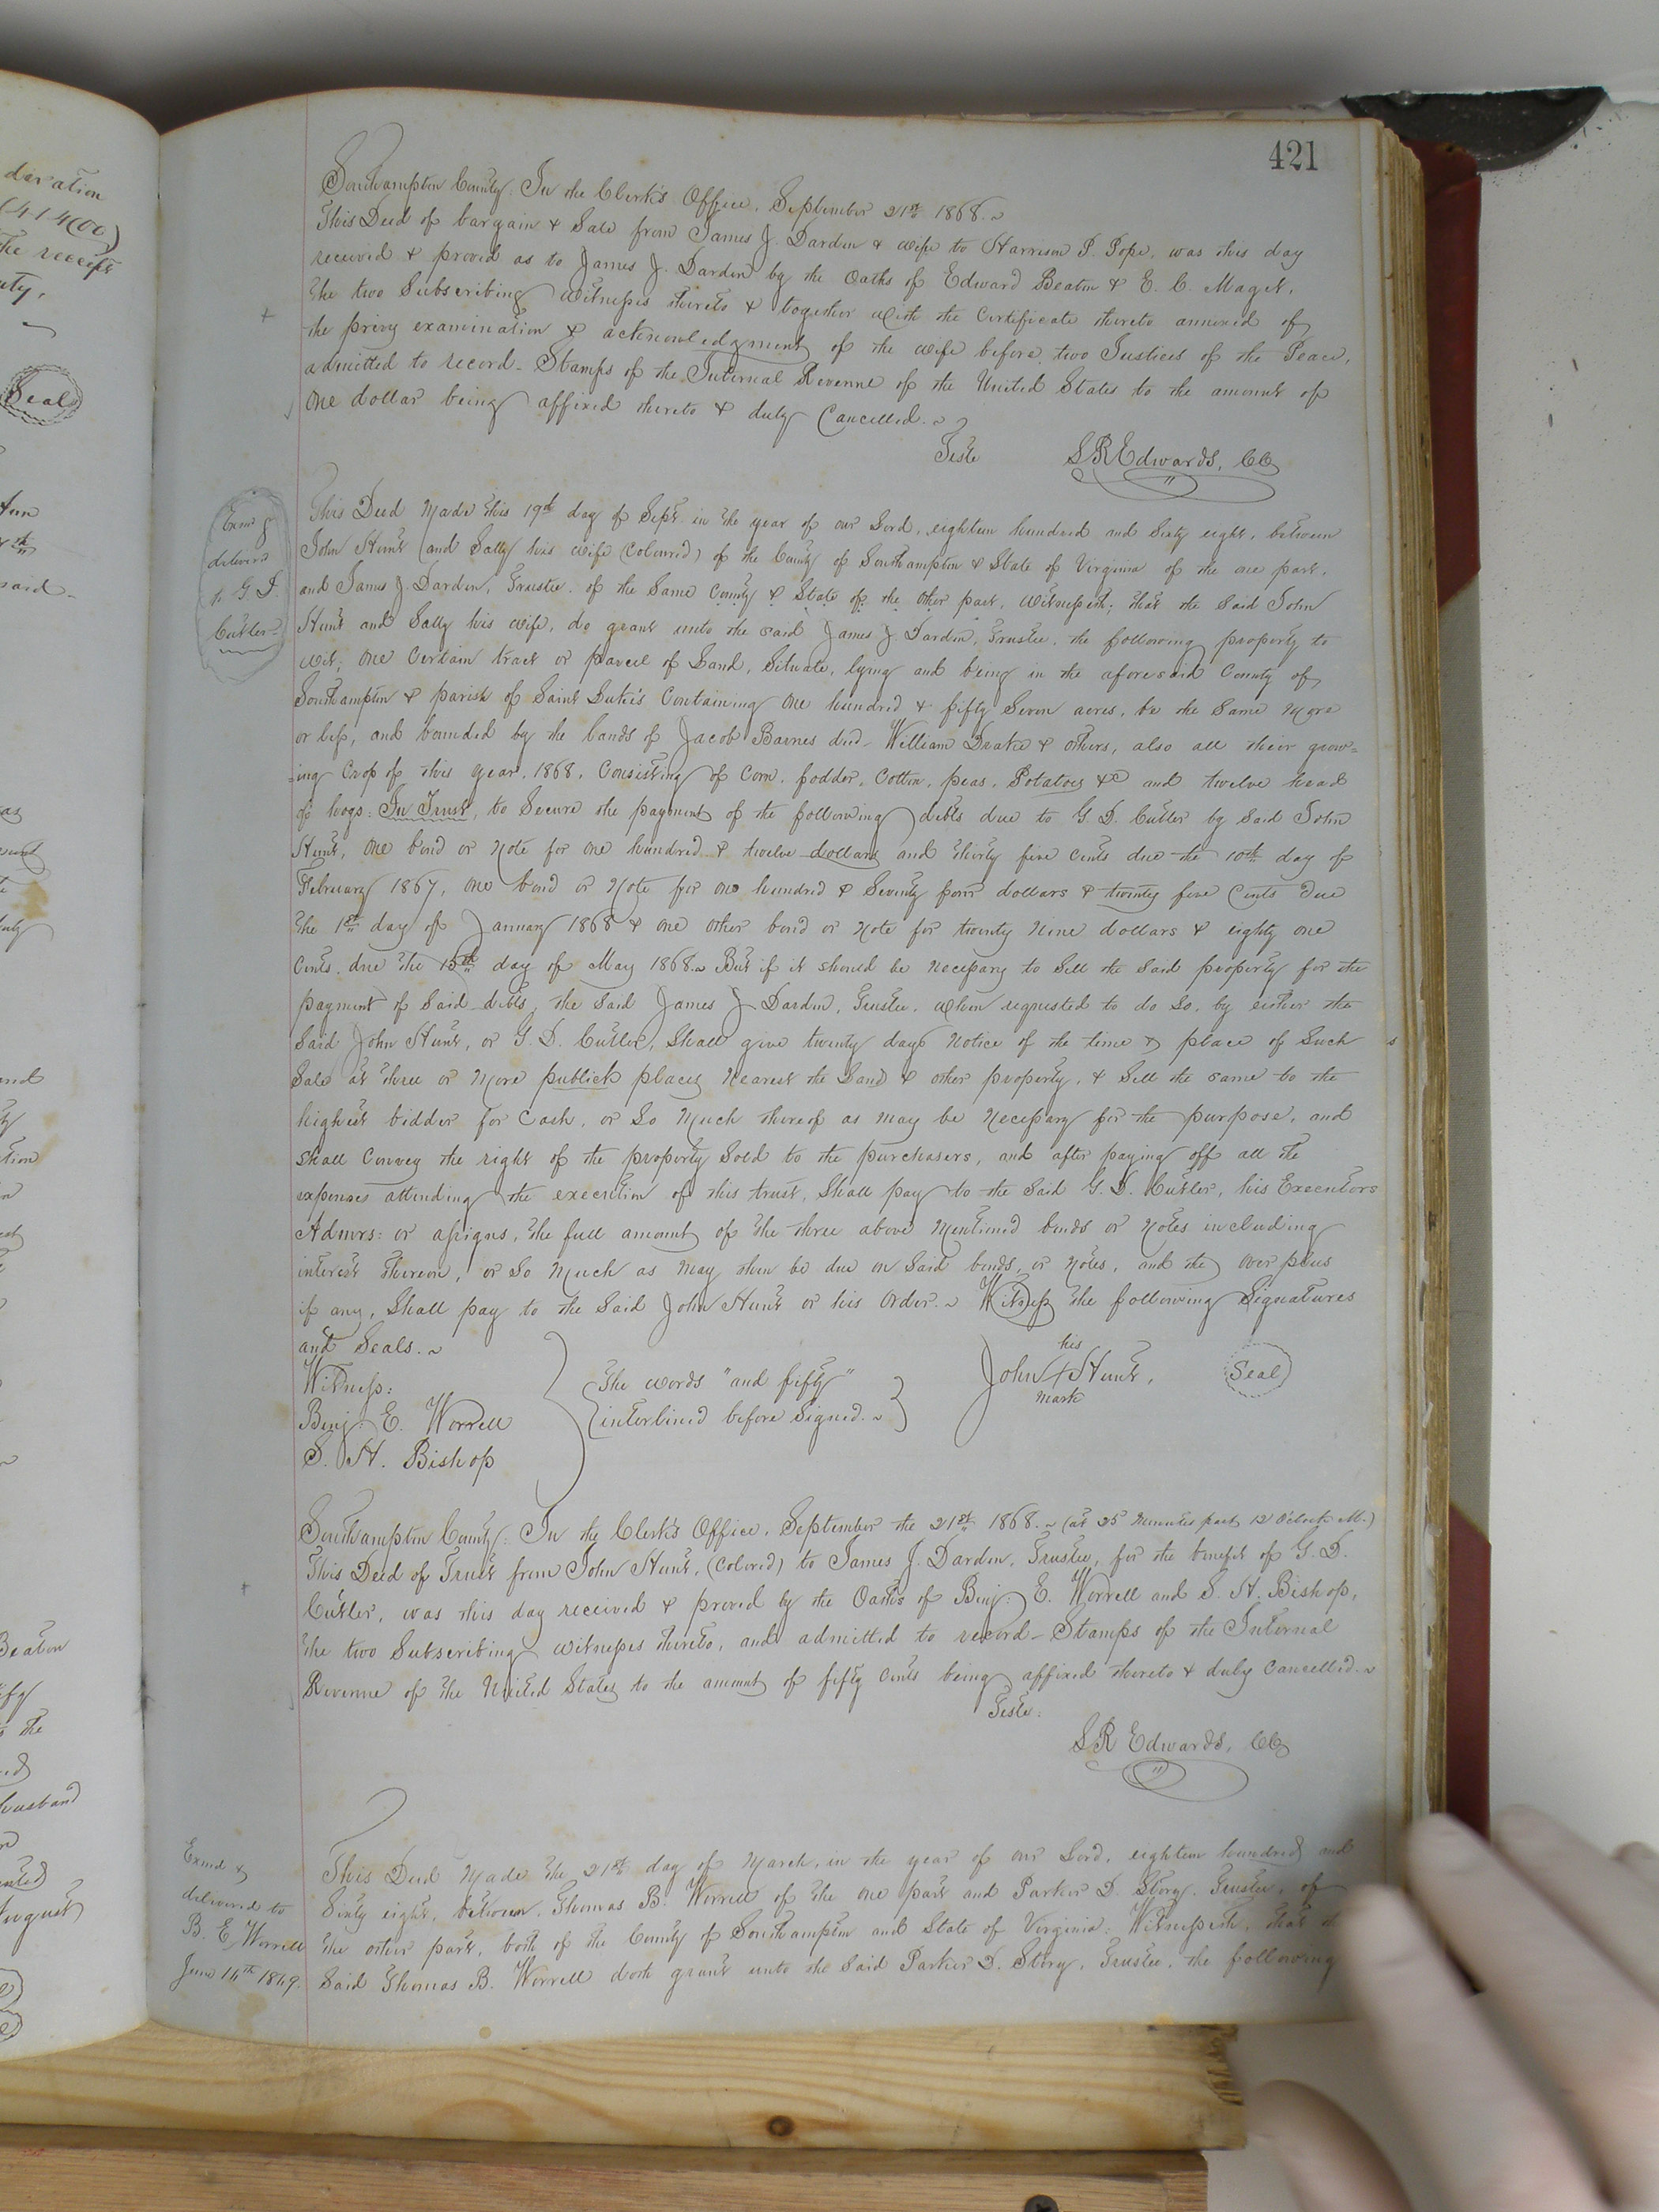 421
Southampton County. In the Clerk's Office, September 21st 1868.~
This Deed of bargain & Sale from James J. Darden & wife to Harrison P. Pope, was this day
received & proved as to James J. Darden by the Oaths of Edward Beaton & E. C. Maget,
the two Subscribing Witnesses thereto & together with the Certificate thereto annexed of
the privy examination & acknowledgment of the wife before two Justices of the Peace,
admitted to record. Stamps of the Internal Revenue of the United States to the amount of
One dollar being affixed thereto & duly Cancelled.~
Teste
L R Edwards, CC
Exmd &
delivered
to G. D.
Cutler
This Deed Made this 19th day of Sept. in the year of our Lord, eighteen hundred and Sixty eight, between
John Hunt (and Sally his wife (Coloured) of the County of Southampton & State of Virginia of the one part,
and James J. Darden, Trustee, of the Same County & State of the Other part, Witnesseth; that the Said John
Hunt and Sally his wife, do grant unto the said James J. Darden, Trustee, the following property to
wit; One Certain tract or parcel of Land, Situate, lying and being in the aforesaid County of
Southampton & parish of Saint Luke's Containing One hundred & fifty Seven acres, be the Same More
or less, and bounded by the lands of Jacob Barnes decd. William Drake & others, also all their grow=
=ing Crop of this year, 1868, Consisting of Corn, fodder, Cotton, peas, Potatoes &c and twelve head
of hogs: In Trust, to Secure the payment of the following debts due to G. D. Cutler by Said John
Hunt, One bond or Note for One hundred & twelve dollars and thirty five cents due the 10th day of
February 1867, one bond or Note for one hundred & Seventy four dollars & twenty five Cents Due
the 1st day of January 1868 & one other bond or Note for twenty Nine dollars & eighty one
Cents. due the 15th day of May 1868.~ But if it should be Necessary to Sell the Said property for the
payment of Said debts, the Said James J Darden, Trustee, when requested to do So, by either the
Said John Hunt, or G. D. Cutler, Shall give twenty days Notice of the time & place of Such
Sale at three or More publick places Nearest the Land & other property, & Sell the same to the
highest bidder for Cash, or So Much thereof as may be Necessary for the purpose, and
shall Convey the right of the property Sold to the purchasers, and after paying off all the
expenses attending the execution of this trust, Shall pay to the Said G. D. Cutler, his Executors
Admrs: or assigns, the full amount of the three above Mentioned bonds or Notes including
interest thereon, or So Much as May then be due on Said bonds, or Notes, and the over plus
if any, Shall pay to the Said John Hunt or his Order.~ Witness the following Signatures
and Seals.~
Witness:
Benj: E. Worrell
S. H. Bishop
The words "and fifty"
interlined before Signed.~
his
John + Hunt,
mark
Seal
Southampton County: In the Clerk's Office, September the 21st 1868.~ (at 25 Minutes past 12 O'clock M.)
This Deed of Trust from John Hunt, (Colored) to James J. Darden, Trustee, for the benefit of G. D.
Cutler, was this day received & proved by the Oaths of Benj: E. Worrell and S. H. Bishop,
the two Subscribing witnesses thereto, and admitted to record— Stamps of the Internal
Revenue of the United States to the amount of fifty Cents being affixed thereto & duly Cancelled.~
Teste:
L R Edwards, CC
Exmd &
delivered to
B. E. Worrell
June 14th 1869.
This Deed Made the 21st day of March, in the year of our Lord, eighteen hundred and
Sixty eight, between, Thomas B. Worrell of the one part and Parker D. Story, Trustee, of
the other part, both of the County of Southampton and State of Virginia: Witnesseth, that
Said Thomas B. Worrell doth grant unto the Said Parker D. Story, Trustee, the following